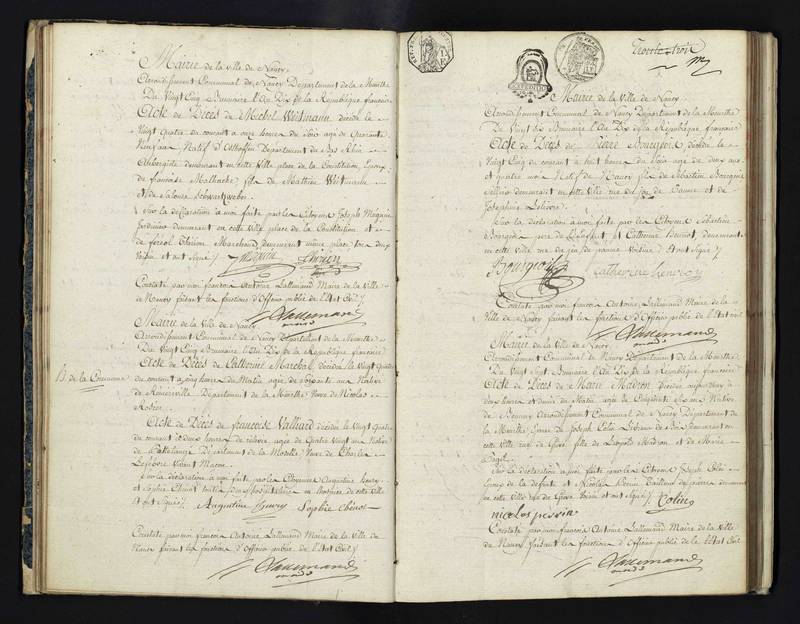 Mairie de la Ville de Nancy
Arrondissement Communal de Nancy Departement de la Meurthe
Du Vingt Cinq Brumaire l'an Dix de la République française
Acte de Décès de Michel Witsmann décédé le
Vingt quatre du courant à onze heures du Soir agé de quarante
neuf ans Natif d' Departement du Bas Rhin
Aubergiste demeurant en cette Ville place de la Constitution, Epoux
de françoise fils de Mathieu Witsmann
et de Salomé
Sur la déclaration à moi faite par les Citoyens Joseph
Jardinier demeurant en cette Ville place de la Constitution et
de Thirien Marchand demeurant même place tous deux
Voisins et ont Signé
Thirien
Constaté par moi françois Antoine Lallemand Maire de la Ville
de Nancy faisant les fonctions d'Officier public de l'Etat Civil
Lallemand
Mairie de la Ville de Nancy
Arrondissement Communal de Nancy Departement de la Meurthe
Du Vingt Cinq Brumaire l'an Dix de la République française
Acte de Décès de Catherine Marchal décédée le Vingt quatre
du courant à cinq heures du Matin agée de soixante ans Native
de Departement de la Meurthe Veuve de Nicolas
Robin
h. de la Commune
Acte de Décès de françoise Valliard décédée le Vingt quatre
du courant à deux heures de relevée agée de Quatre Vingt ans Native
de Departement de la Moselle Veuve de Charles
Lefebvre Vivant Macon
Sur la déclaration à moi faite par les Citoyennes Augustine henry
et Sophie Chenot toutes deux hospitalières en hospice de cette ville
et ont Signé
Augustine henry Sophie Chenot
Constaté par moi françois Antoine Lallemand Maire de la Ville de
Nancy faisant les fonctions d'Officier public de l'Etat Civil
Lallemand
Trente trois
Mairie de la Ville de Nancy
Arrondissement Communal de Nancy Departement de la Meurthe
Du Vingt six Brumaire l'An Dix de la République française
Acte de Décès de Pierre Bourgeois décédé le
Vingt Cinq du courant à huit heures du Soir agé de deux ans
et quatre mois Natif de Nancy fils de Sébastien Bourgeois
Sellier demeurant en cette Ville rue du jeu de Paume et de
Josephine Lelievre
Sur la déclaration à moi faite par les Citoyens Sébastien
Bourgeois père du Défunt et Catherine demeurante
en cette Ville rue du jeu de paume Voisine et ont Signé
Bourgeois Catherine
Constaté par moi françois Antoine Lallemand Maire de la
Ville de Nancy faisant les fonctions d'Officier public de l'Etat civil
Lallemand
Mairie de la Ville de Nancy
Arrondissement Communal de Nancy Departement de la Meurthe
Du Vingt Sept Brumaire l'an Dix de la République française
Acte de Décès de Marie Madron décédée aujourd'huy à
deux heures et demie du Matin agée de Cinquante Six ans Native
de Arrondissement Communal de Nancy Departement de
la Meurthe femme de Joseph Colin demeurant en
cette Ville rue de fille de Léopold Madron et de Marie
Paget
Sur la déclaration à moi faite par les Citoyens Joseph Colin
Epoux de la defunte et Nicolas Perrin Tailleur de pierres demeurant
en cette Ville rue de Voisin et ont Signé
Colin
nicolas perrin
Constaté par moi françois Antoine Lallemand Maire de la Ville
de Nancy faisant les fonctions d'Officier public de l'Etat Civil
Lallemand